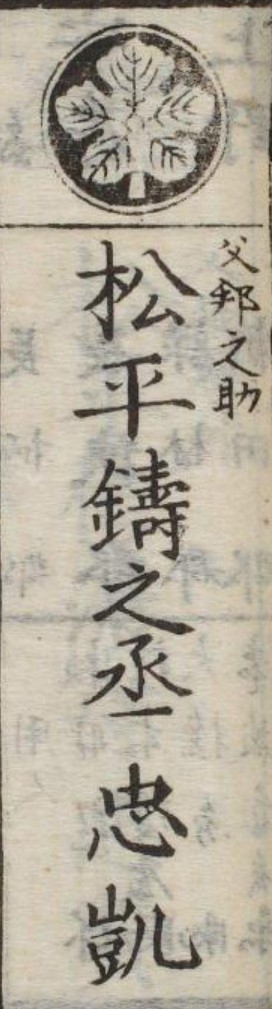 父邦之助
松平鑄之丞忠凱